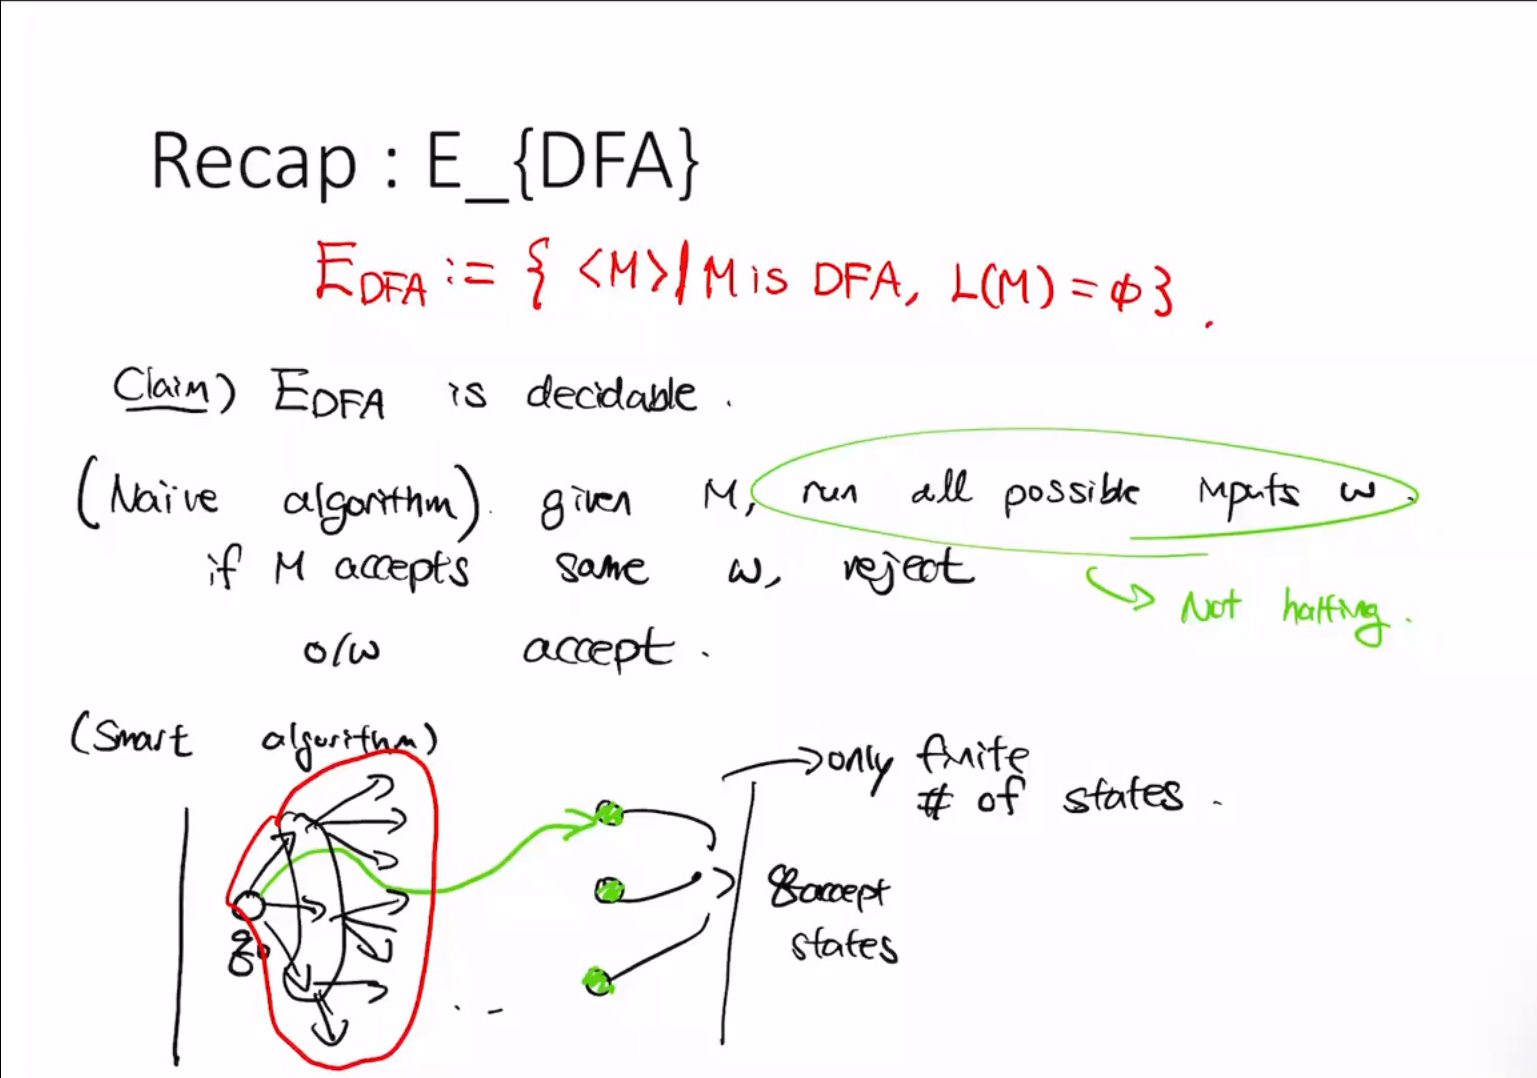 Recap : E_{DFA}
E_DFA := { <M> | M is DFA, L(M) = ϕ } .
Claim) E_DFA is decidable .
(Naïve algorithm) . given M, run all possible inputs w .
if M accepts some w, reject
→ Not halting .
o/w accept .
(Smart algorithm)
→ only finite
# of states .
q0
accept
states
. . -